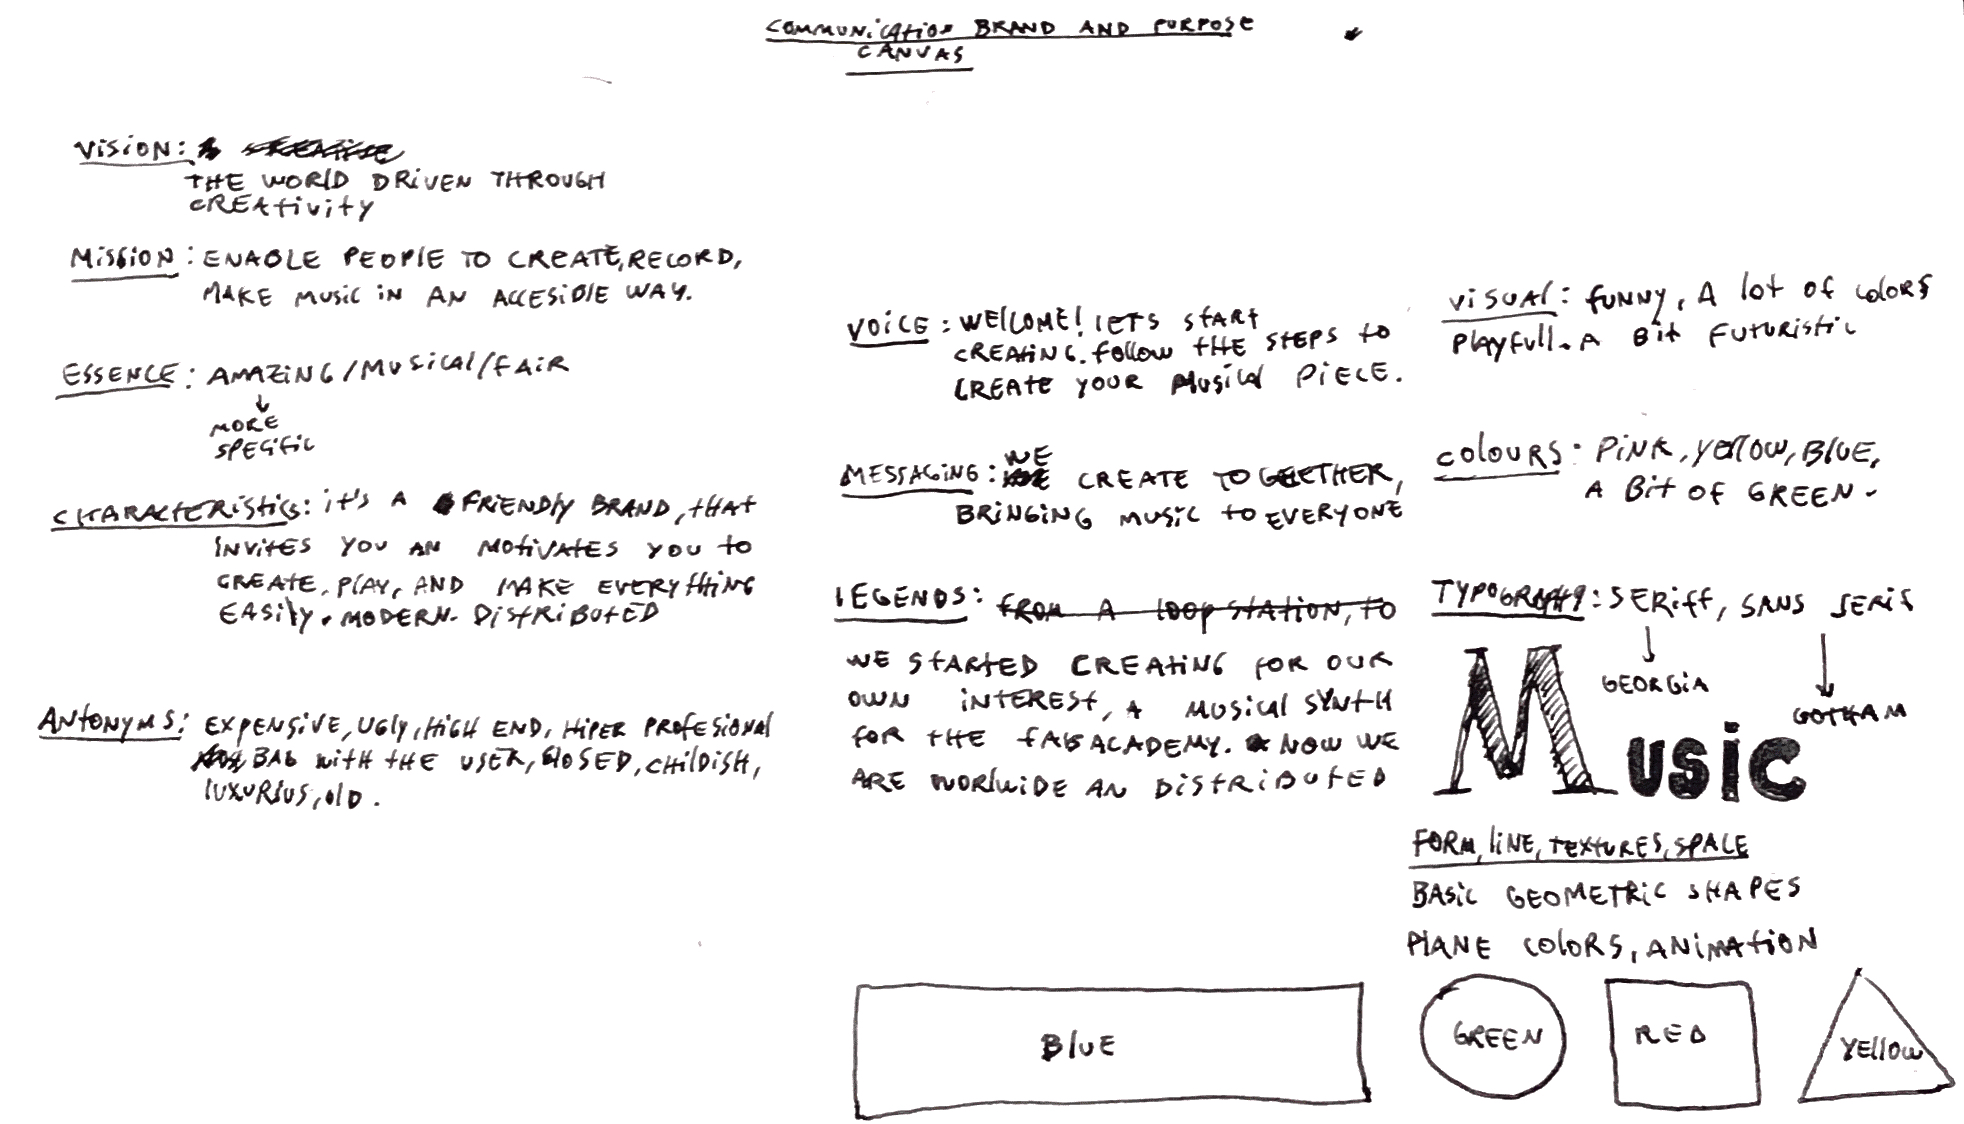 COMMUNICATION BRAND AND PURPOSE
CANVAS
VISION:
THE WORLD DRIVEN THROUGH
CREATIVITY
MISSION: ENABLE PEOPLE TO CREATE, RECORD,
MAKE MUSIC IN AN ACCESIBLE WAY.
ESSENCE: AMAZING/MUSICAL/FAIR
MORE
SPECIFIC
CHARACTERISTICS: it's A FRIENDLY BRAND, tHAT
INVITES YOU AN MOTIVATES YOU to
CREATE, PLAY, AND MAKE EVERYTHING
EASILY. MODERN. DISTRIBUTED
ANTONYMS: EXPENSIVE, UGLY, HIGH END, HIPER PROFESIONAL
BAD WITH THE USER, CLOSED, CHILDISH,
LUXURIUS, OLD.
VOICE: WELLCOME! LETS START
CREATING. FOLLOW THE STEPS TO
CREATE YOUR MUSICAL PIECE.
WE
MESSAGING: CREATE TOGETHER,
BRINGING MUSIC TO EVERYONE
LEGENDS: FROM A LOOP STATION, TO
WE STARTED CREATING FOR OUR
OWN INTEREST, A MUSICAL SYNTH
FOR THE FAB ACADEMY. NOW WE
ARE WORLWIDE AN DISTRIBUTED
VISUAL: FUNNY, A LOT OF COLORS
PLAYFULL. A BIT FUTURISTIC
COLOURS: PINK, YELLOW, BLUE,
A BIT OF GREEN.
TYPOGRAPHY: SERIFF, SANS SERIF
GEORGIA
GOTHAM
MUSIC
FORM, LINE, TEXTURES, SPACE
BASIC GEOMETRIC SHAPES
PLANE COLORS, ANIMATION
BLUE
GREEN
RED
YELLOW